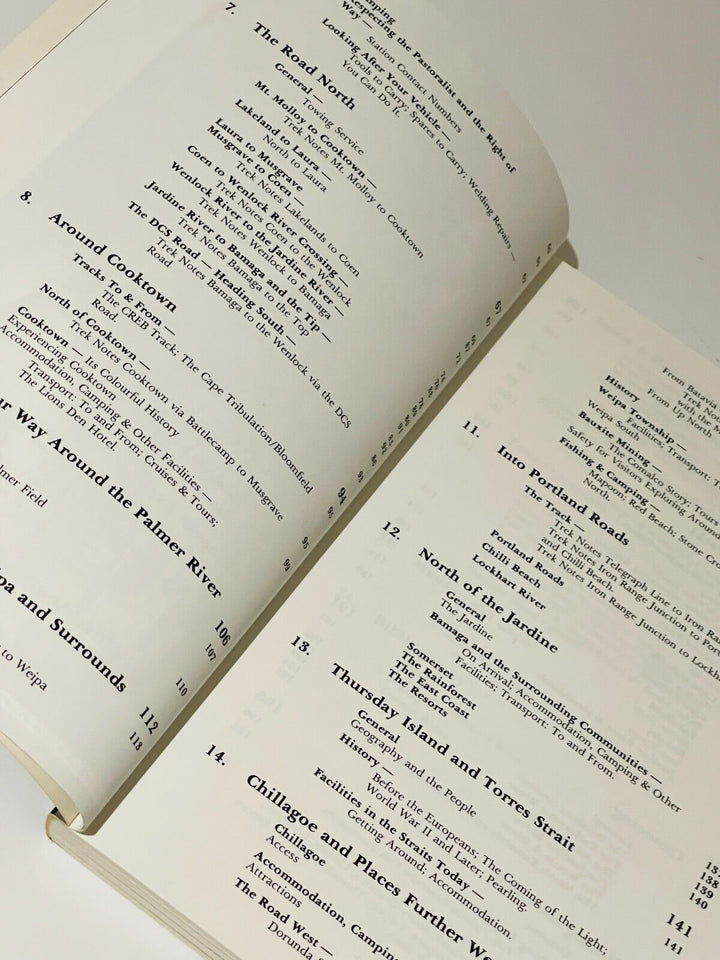 amping
Respecting the Pastoralist and the Right of
Way —
Station Contact Numbers
Looking After Your Vehicle —
Tools to Carry; Spares to Carry; Welding Repairs —
You Can Do It.
7.
The Road North
67
General —
Towing Service
Mt. Molloy to Cooktown —
Trek Notes Mt. Molloy to Cooktown
Lakeland to Laura —
North to Laura
Laura to Musgrave
Trek Notes Lakelands to Coen
Musgrave to Coen —
Coen to Wenlock River Crossing —
Trek Notes Coen to the Wenlock
Wenlock River to the Jardine River —
Trek Notes Wenlock to Bamaga
Jardine River to Bamaga and the Tip —
Trek Notes Bamaga to the Top
The DCS Road — Heading South —
Trek Notes Bamaga to the Wenlock via the DCS
Road
8.
Around Cooktown
94
Tracks To & From —
The CREB Track; The Cape Tribulation/Bloomfield
Road
95
North of Cooktown —
Trek Notes Cooktown via Battlecamp to Musgrave
Cooktown — Its Colourful History
Experiencing Cooktown
Accommodation, Camping & Other Facilities —
Transport: To and From; Cruises & Tours;
The Lions Den Hotel.
Way Around the Palmer River
106
107
lmer Field
110
pa and Surrounds
112
113
to Weipa
From Batavia
Trek Note
with the M
From Up North
History —
Weipa Township —
Facilities; Transport: T
Weipa South
Bauxite Mining —
The Comalco Story; Tours
Safety for Visitors Exploring Around
Fishing & Camping —
Mapoon; Red Beach; Stone Cro
North;
11.
Into Portland Roads
The Track —
Trek Notes Telegraph Line to Iron Ra
Trek Notes Iron Range Junction to Port
and Chilli Beach.
Trek Notes Iron Range Junction to Lockha
Portland Roads
Chilli Beach
Lockhart River
12.
North of the Jardine
General
The Jardine
Bamaga and the Surrounding Communities —
On Arrival; Accommodation, Camping & Other
Facilities; Transport: To and From.
Somerset
The Rainforest
The East Coast
The Resorts
138
139
140
13.
Thursday Island and Torres Strait
141
General
141
Geography and the People
History —
Before the Europeans; The Coming of the Light;
World War II and Later; Pearling.
Facilities in the Straits Today —
Getting Around; Accommodation.
14.
Chillagoe and Places Further We
Chillagoe
Access
Accommodation, Campin
Attractions
The Road West —
Dorunda S